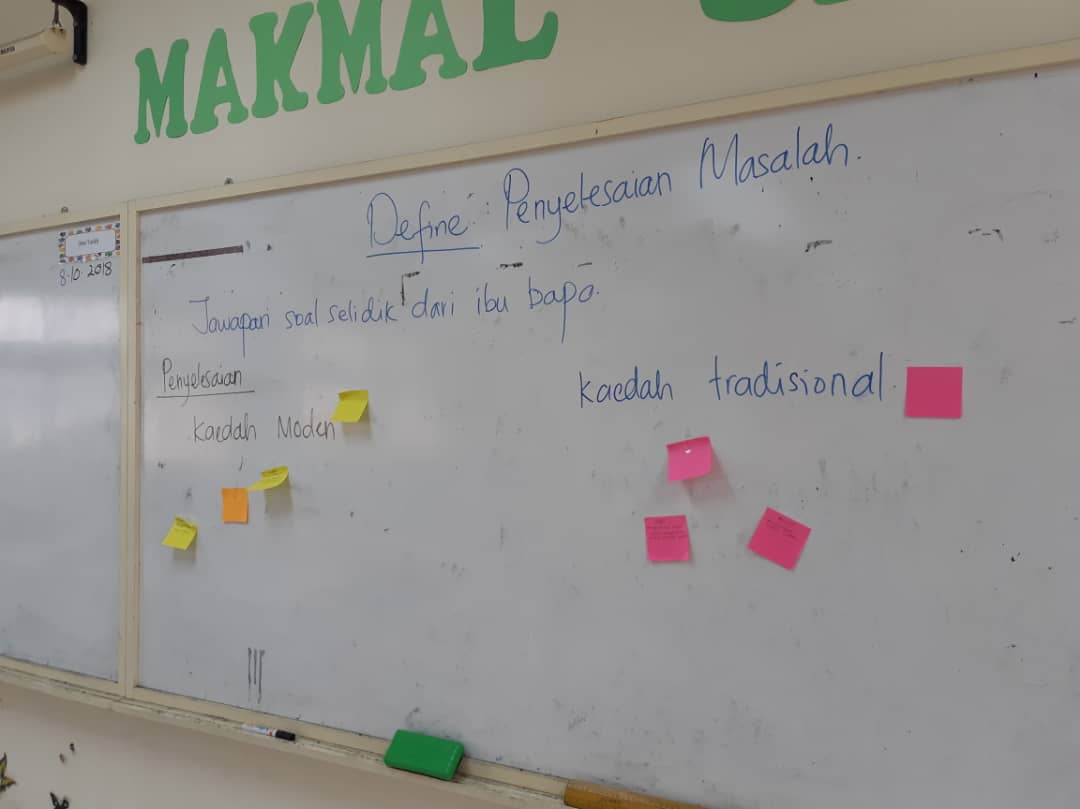 MAKMAL
8.10.2018
Define: Penyelesaian Masalah.
Jawapan soal selidik dari ibu bapa.
Penyelesaian
Kaedah Moden
kaedah tradisional